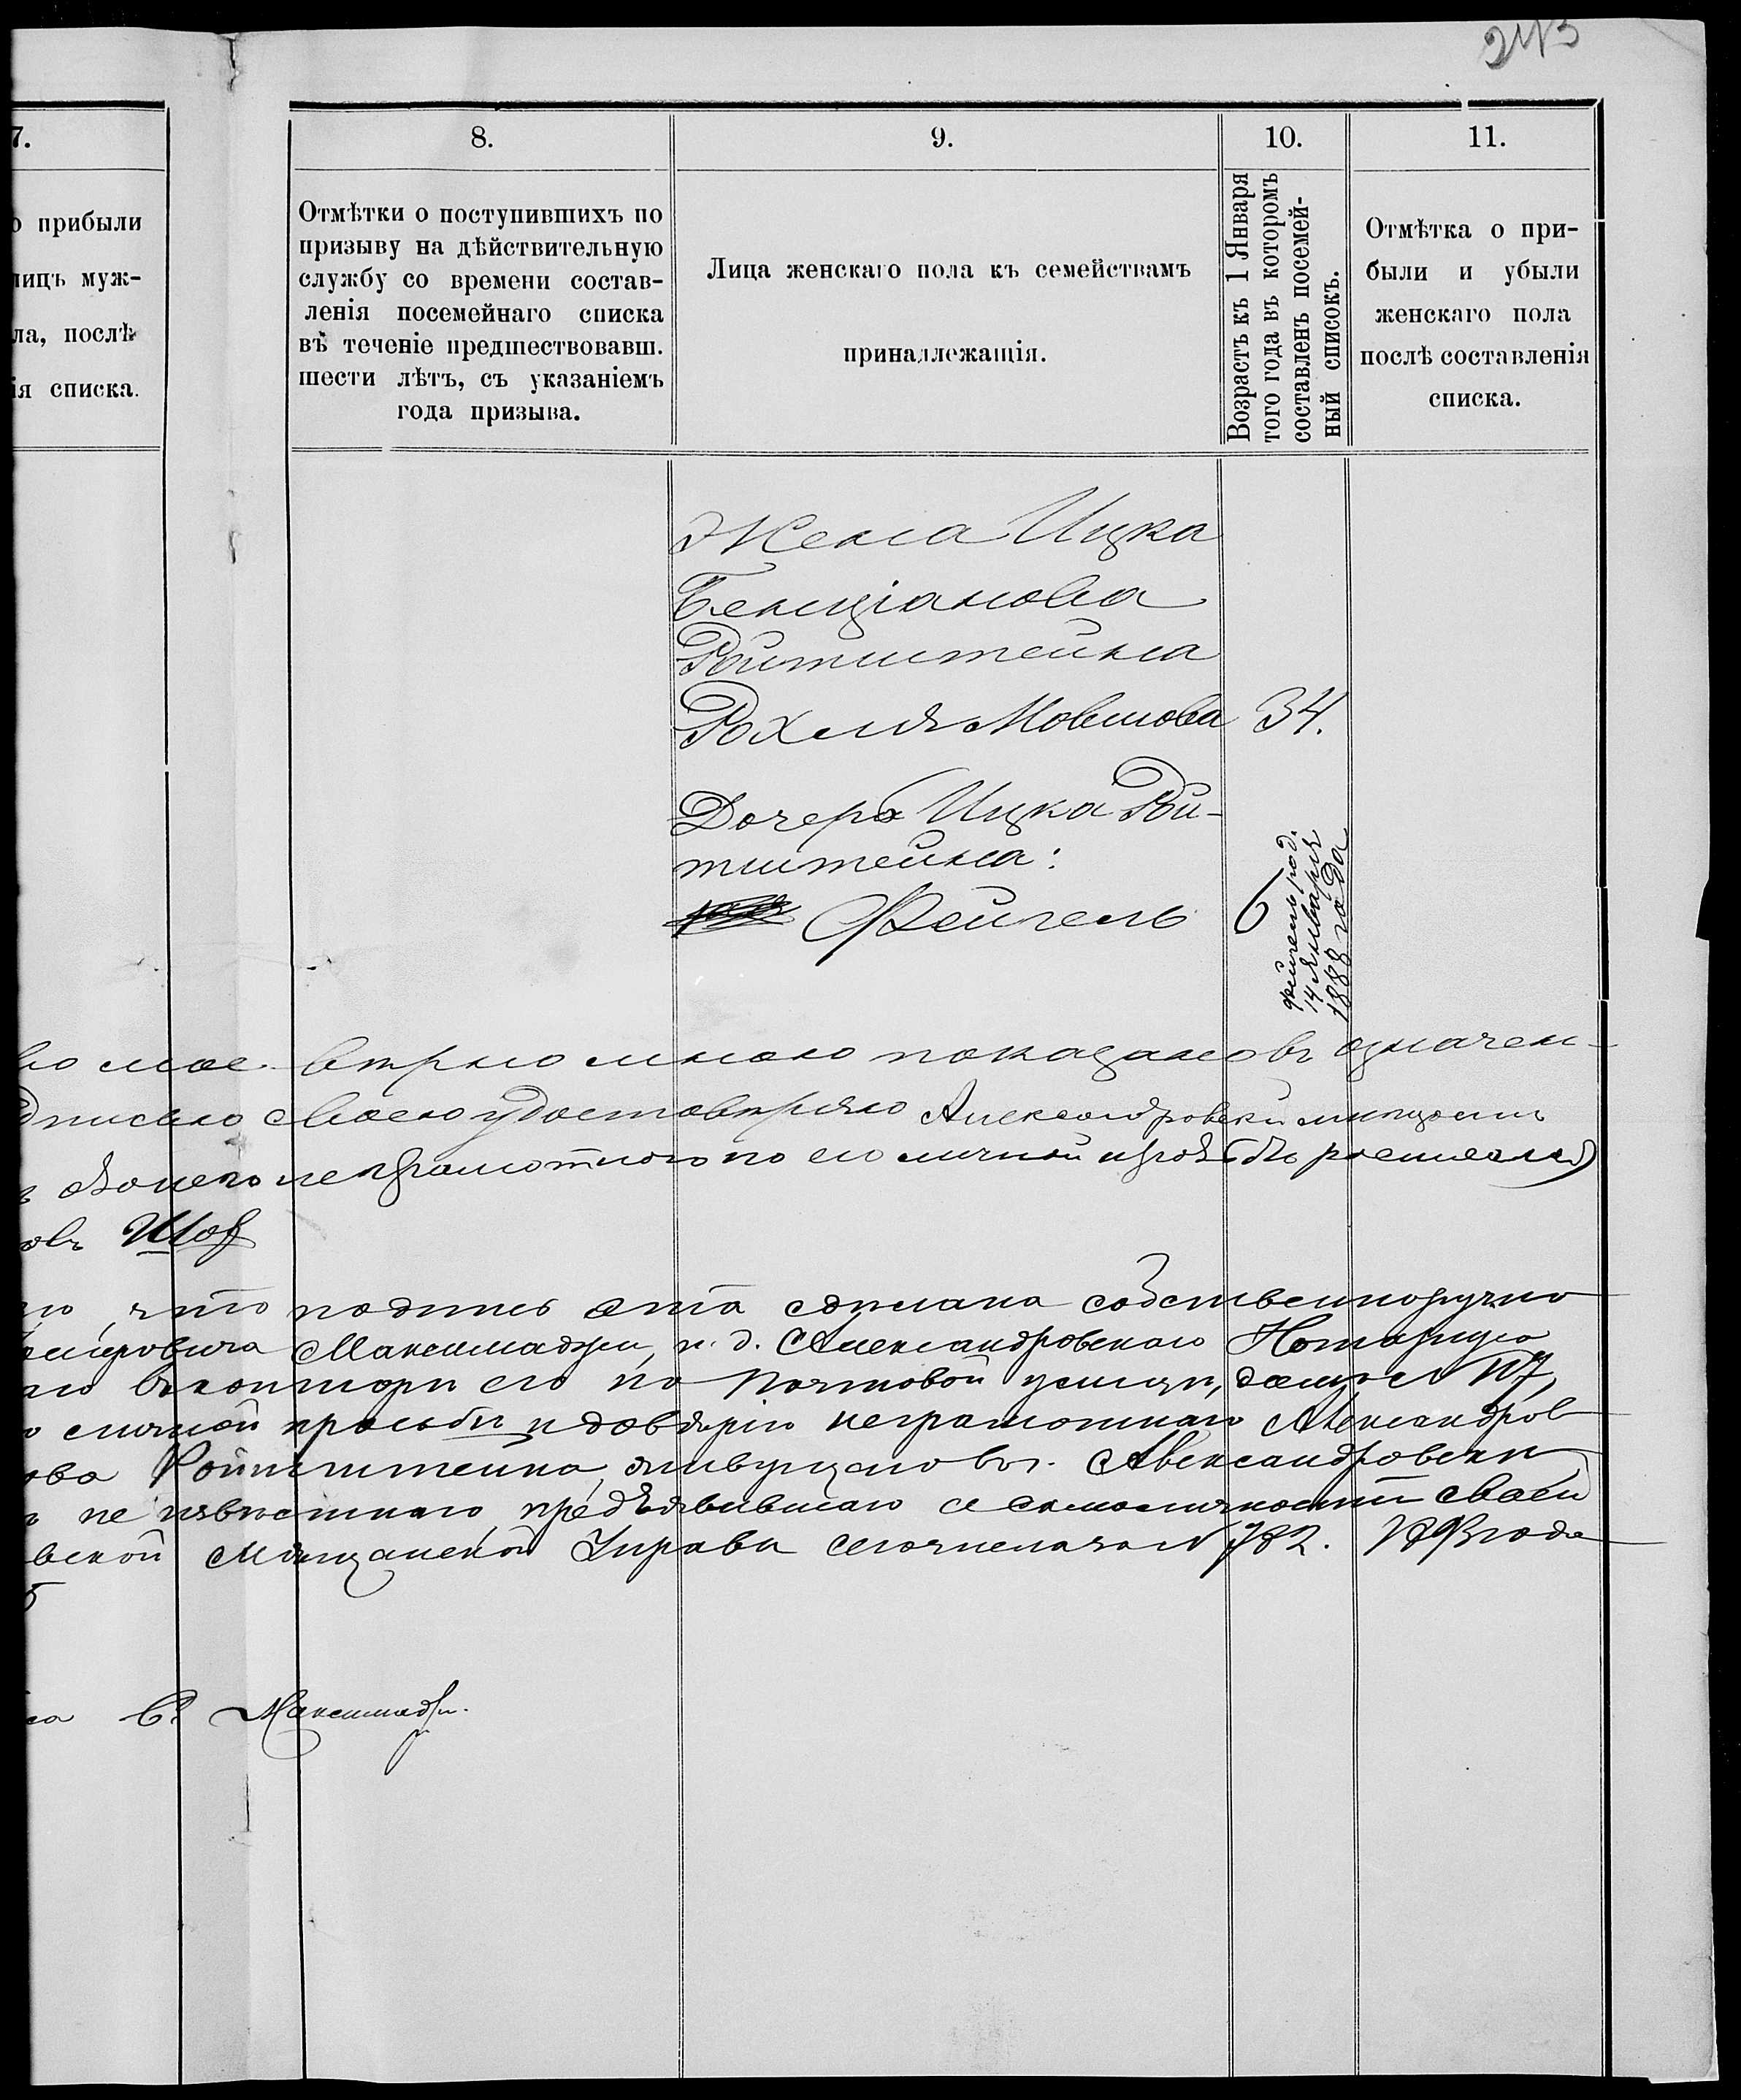 243
7.
о прибыли
лицъ муж-
ла, послѣ
ія списка.
8.
Отмѣтки о поступившихъ по
призыву на дѣйствительную
службу со времени состав-
ленія посемейнаго списка
въ теченіе предшествовавш.
шести лѣтъ, съ указаніемъ
года призыва.
9.
Лица женскаго пола къ семействамъ
принадлежащія.
10.
Возрастъ къ 1 Января
того года въ которомъ
составленъ посемей-
ный списокъ.
11.
Отмѣтка о при-
были и убыли
женскаго пола
послѣ составленія
списка.
Жена Ицка
Бенціанова
Ройтштейна
Рохля Мовшова 34.
Дочерь Ицка Рой-
тштейна:
Фейгель 6
Фейгель род.
14 января
1888 года
вѣрно мною показано въ означен-
дписью своею удостовѣряю Александровскій мѣщанинъ
неграмотнаго по его личной просьбѣ росписался
овъ
что подпись эта сдѣлана собственноручно
Максимаджи, и. д. Александровскаго Нотаріуса
въ конторѣ его по Почтовой улицѣ, домъ №
личной просьбѣ и довѣрію неграмотнаго Александров
ова Ройтштейна, живущаго въ г. Александровскѣ
не извѣстнаго, предъявившаго о самоличности своей
вской Мѣщанской Управы сего числа за № 782. 189 года
Максимаджи